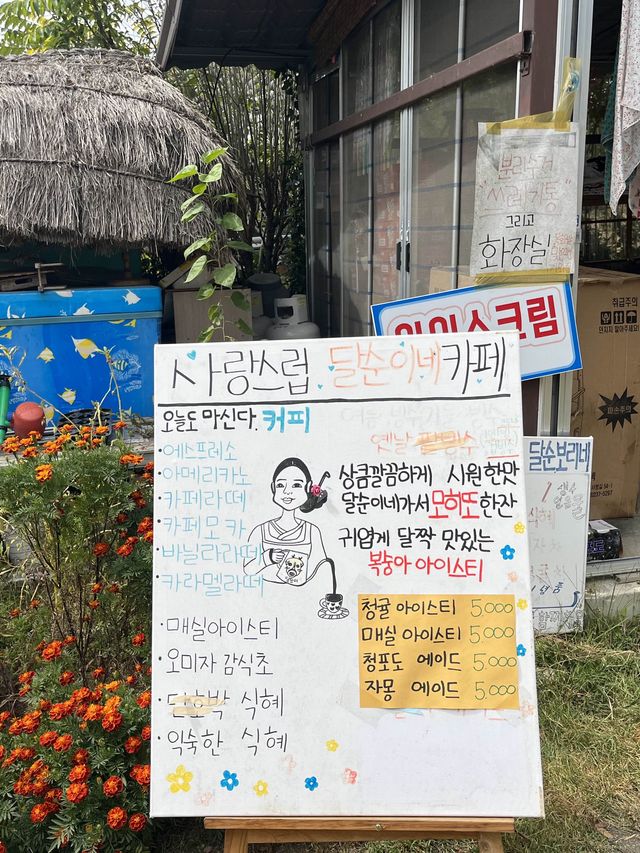 분리수거
"쓰레기통"
그리고
화장실
아이스크림
사랑스럽 달순이네 카페
오늘도 마신다. 커피
옛날 팥빙수
에스프레소
아메리카노
카페라떼
카페모카
바닐라라떼
카라멜라떼
상큼깔끔하게 시원한맛
달순이네가서 모히또한잔
귀엽게 달짝 맛있는
복숭아 아이스티
·매실아이스티
·오미자 감식초
·단호박 식혜
·익숙한 식혜
청귤 아이스티 5,000
매실 아이스티 5,000
청포도 에이드 5,000
자몽 에이드 5,000
달순보리네
식혜
취급주의
파손주의